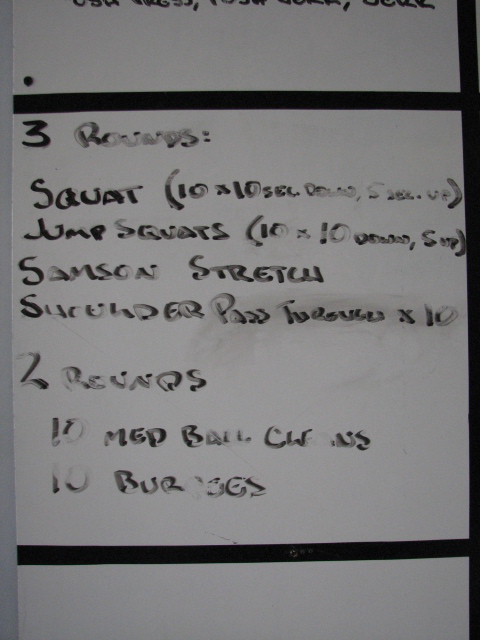 PRESS, PUSH JERK, JERK
3 ROUNDS:
SQUAT (10 x 10 SEC. DOWN, 5 SEC. UP)
JUMP SQUATS (10 x 10 DOWN, 5 UP)
SAMSON STRETCH
SHOULDER PASS THROUGH x 10
2 ROUNDS
10 MED BALL CLEANS
10 BURPEES